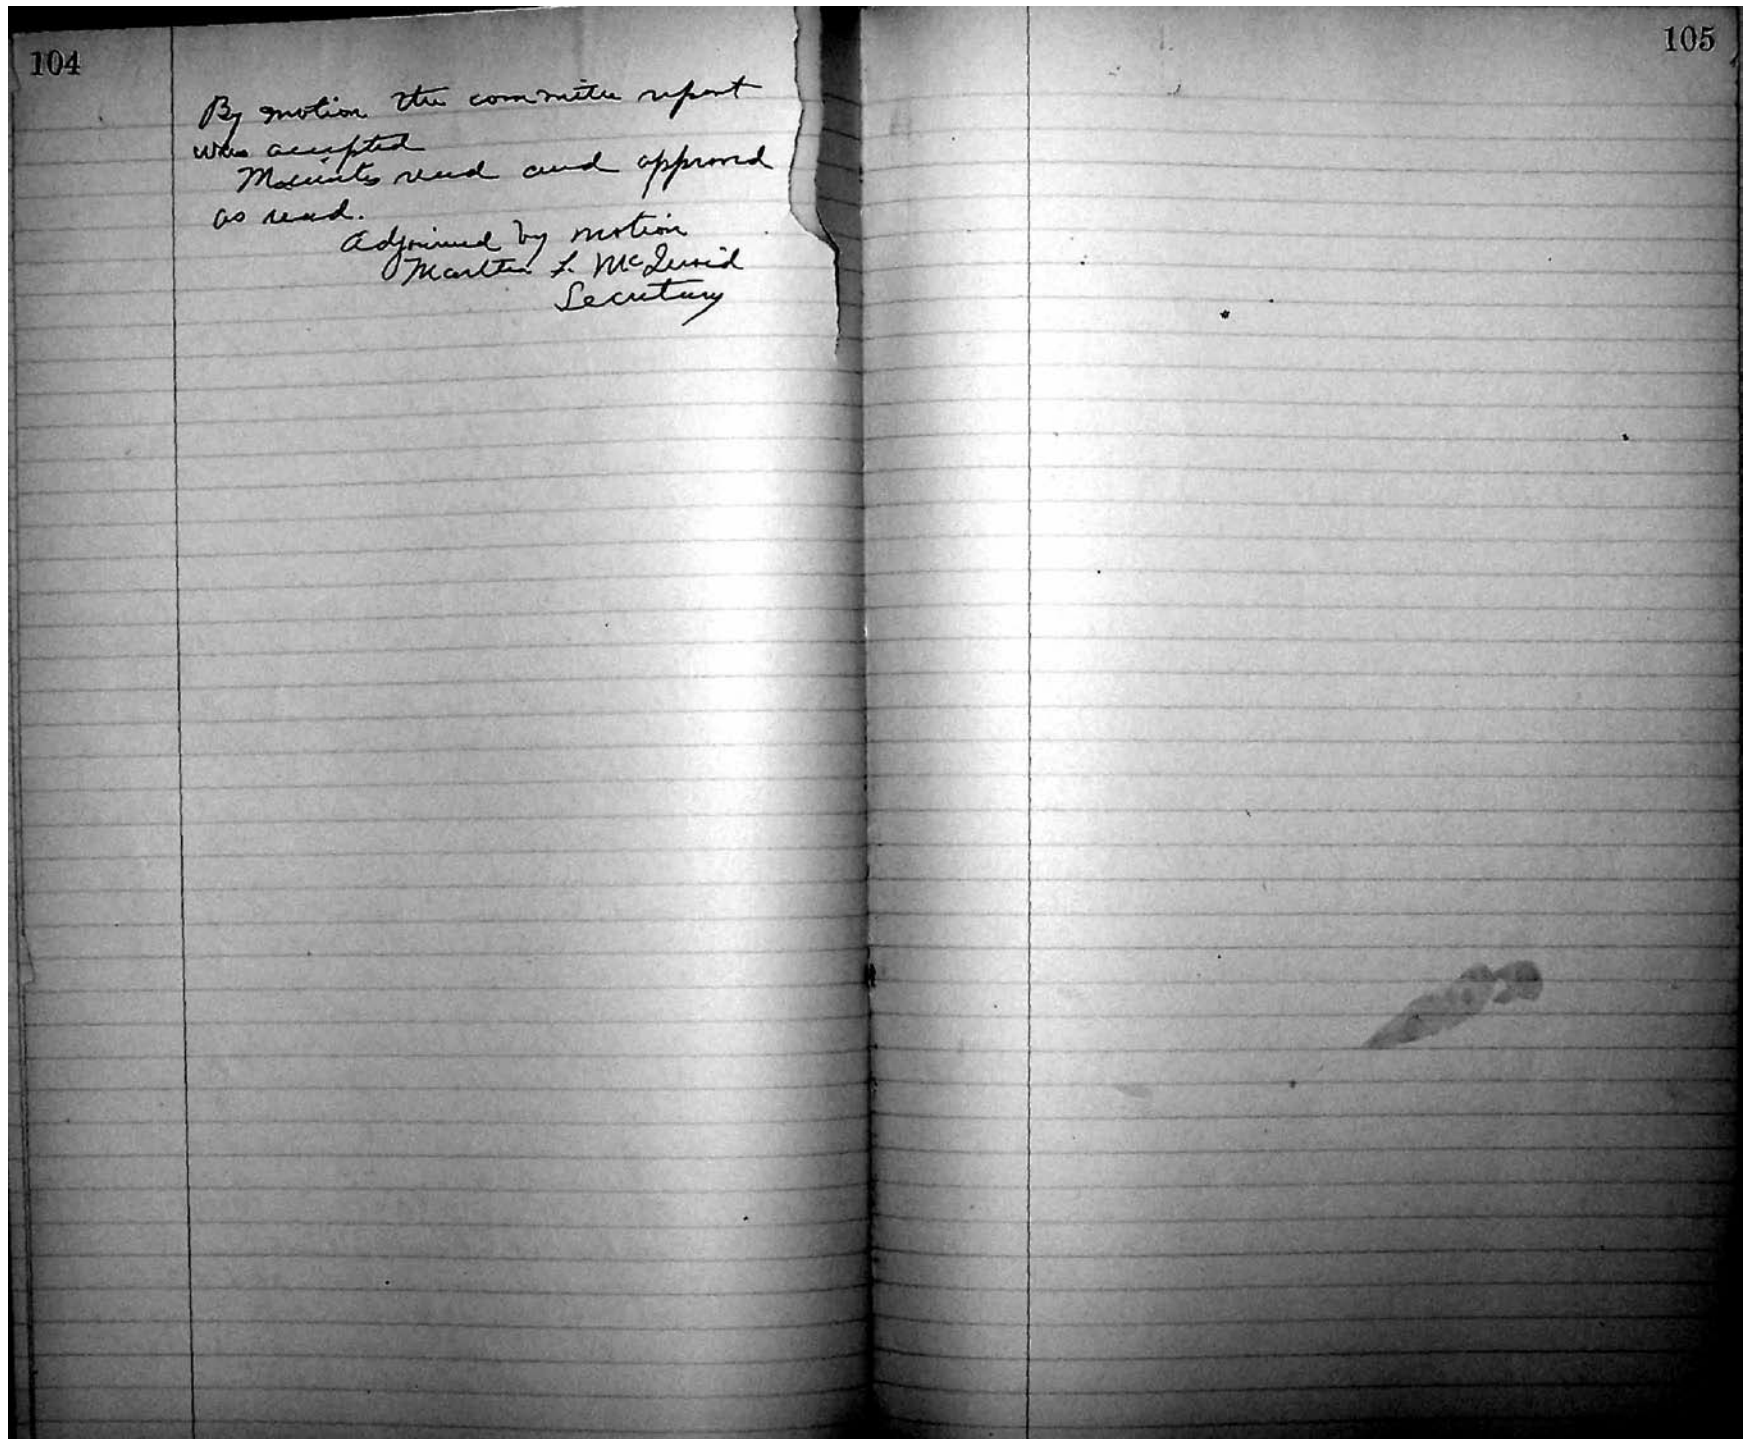 104
By motion the committee report
was accepted
Minutes read and approved
as read.
Adjourned by motion
L. Mc
Secretary
105